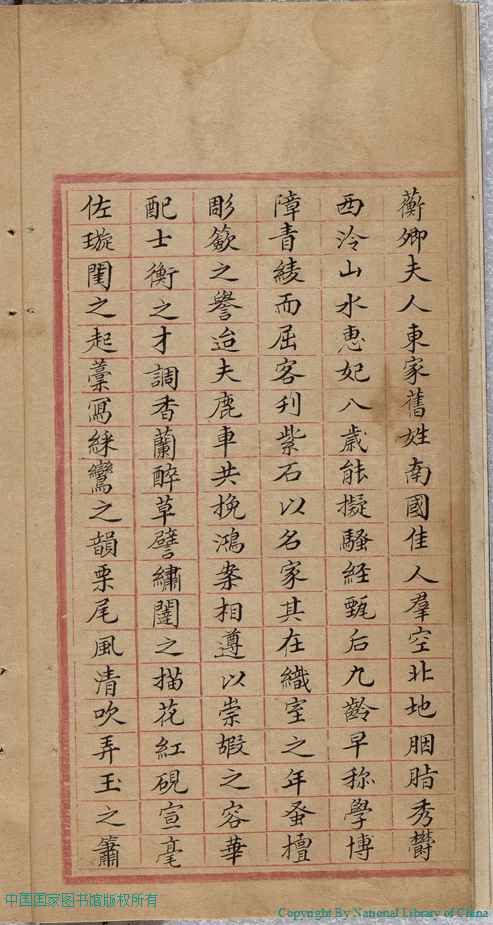 蘅卿夫人東家舊姓南國佳人羣空北地胭脂秀欝
西泠山水惠妃八歲能擬騷經甄后九齡早称學博
障青綾而屈客刋紫石以名家其在織室之年蚤擅
彫欽之譽迨夫鹿車共挽鴻案相遵以崇嘏之容華
配士衡之才調香蘭醉草譬繡闥之描花紅硯宣毫
佐璇閨之起藁寫綵鸞之韻栗尾風清吹弄玉之簫
中国国家图书馆版权所有
Copyright By National Library of China